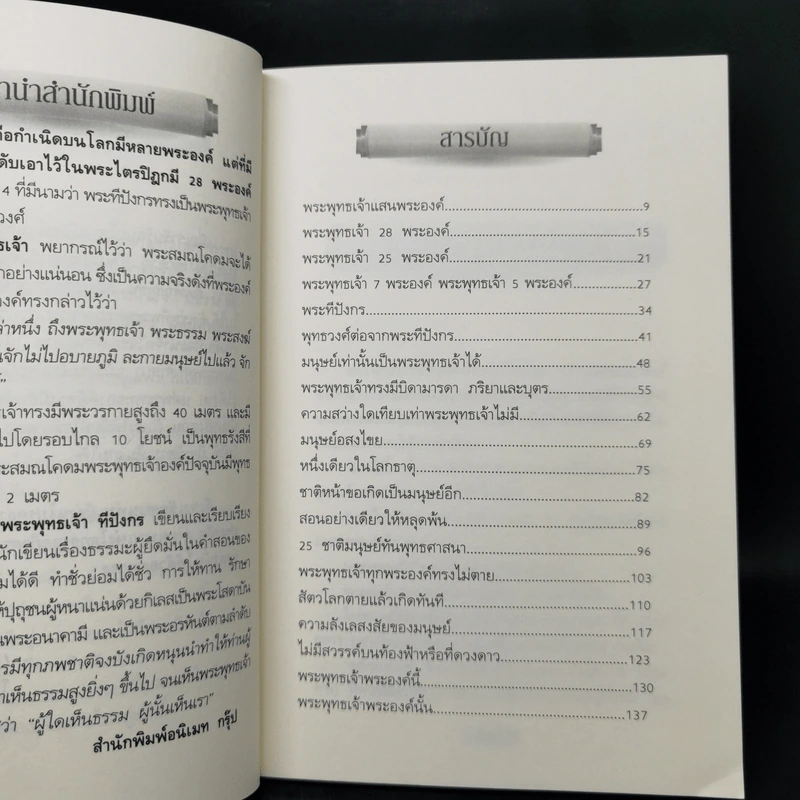 นำสำนักพิมพ์
กำเนิดบนโลกมีหลายพระองค์ แต่ที่มี
ดับเอาไว้ในพระไตรปิฎกมี 28 พระองค์
4 ที่มีนามว่า พระทีปังกรทรงเป็นพระพุทธเจ้า
วงศ์
ธเจ้า พยากรณ์ไว้ว่า พระสมณโคดมจะได้
กอย่างแน่นอน ซึ่งเป็นความจริงดังที่พระองค์
งค์ทรงกล่าวไว้ว่า
หนึ่ง ถึงพระพุทธเจ้า พระธรรม พระสงฆ์
จักไม่ไปอบายภูมิ ละกายมนุษย์ไปแล้ว จัก
เจ้าทรงมีพระวรกายสูงถึง 40 เมตร และมี
ไปโดยรอบไกล 10 โยชน์ เป็นพุทธรังสีที่
ระสมณโคดมพระพุทธเจ้าองค์ปัจจุบันมีพุทธ
2 เมตร
พระพุทธเจ้า ทีปังกร เขียนและเรียบเรียง
นักเขียนเรื่องธรรมะผู้ยึดมั่นในคำสอนของ
มได้ดี ทำชั่วย่อมได้ชั่ว การให้ทาน รักษา
ปุถุชนผู้หนาแน่นด้วยกิเลสเป็นพระโสดาบัน
นพระอนาคามี และเป็นพระอรหันต์ตามลำดับ
รมีทุกภพชาติจงบังเกิดหนุนนำทำให้ท่านผู้
าเห็นธรรมสูงยิ่งๆ ขึ้นไป จนเห็นพระพุทธเจ้า
ว่า "ผู้ใดเห็นธรรม ผู้นั้นเห็นเรา"
สำนักพิมพ์อนิเมท กรุ๊ป
สารบัญ
พระพุทธเจ้าแสนพระองค์...........9
พระพุทธเจ้า 28 พระองค์...........15
พระพุทธเจ้า 25 พระองค์...........21
พระพุทธเจ้า 7 พระองค์ พระพุทธเจ้า 5 พระองค์...........27
พระทีปังกร...........34
พุทธวงศ์ต่อจากพระทีปังกร...........41
มนุษย์เท่านั้นเป็นพระพุทธเจ้าได้...........48
พระพุทธเจ้าทรงมีบิดามารดา ภริยาและบุตร...........55
ความสว่างใดเทียบเท่าพระพุทธเจ้าไม่มี...........62
มนุษย์อสงไขย...........69
หนึ่งเดียวในโลกธาตุ...........75
ชาติหน้าขอเกิดเป็นมนุษย์อีก...........82
สอนอย่างเดียวให้หลุดพ้น...........89
25 ชาติมนุษย์ทันพุทธศาสนา...........96
พระพุทธเจ้าทุกพระองค์ทรงไม่ตาย...........103
สัตว์โลกตายแล้วเกิดทันที...........110
ความลังเลสงสัยของมนุษย์...........117
ไม่มีสวรรค์บนท้องฟ้าหรือที่ดวงดาว...........123
พระพุทธเจ้าพระองค์นี้...........130
พระพุทธเจ้าพระองค์นั้น...........137